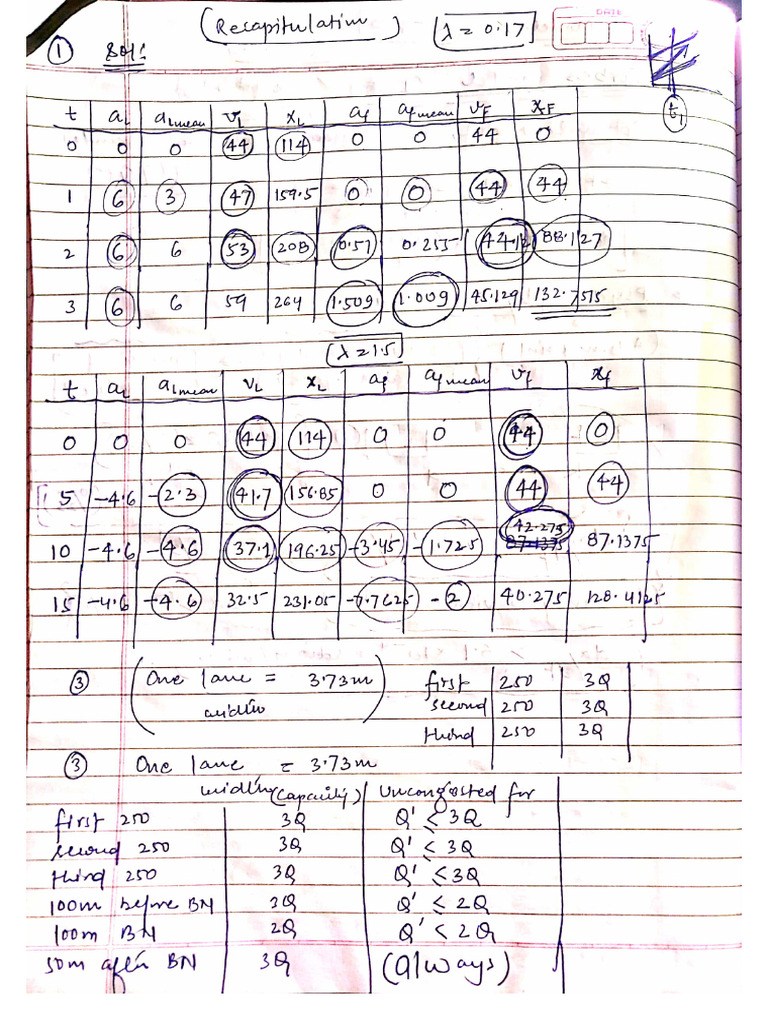 (Recapitulation) λ = 0.17
DATE
① Sol!
t₁
t | aL | aLmean | vL | xL | af | af mean | vF | xF
0 | 0 | 0 | 44 | 114 | 0 | 0 | 44 | 0
1 | 6 | 3 | 47 | 159.5 | 0 | 0 | 44 | 44
2 | 6 | 6 | 53 | 208 | 0.51 | 0.255 | 44.12 | 88.127
3 | 6 | 6 | 59 | 264 | 1.509 | 1.009 | 45.129 | 132.7515
(λ = 1.5)
t | aL | aLmean | vL | xL | af | af mean | vf | xf
0 | 0 | 0 | 44 | 114 | 0 | 0 | 44 | 0
5 | -4.6 | -2.3 | 41.7 | 156.85 | 0 | 0 | 44 | 44
10 | -4.6 | -4.6 | 37.1 | 196.25 | -3.45 | -1.725 | 42.275 87.1375 | 87.1375
15 | -4.6 | -4.6 | 32.5 | 231.05 | -7.7625 | -2 | 40.275 | 128.4125
③ (One lane = 3.73m
width)
first | 250 | 3Q
second | 250 | 3Q
third | 250 | 3Q
③ One lane = 3.73m
width
(capacity) | Uncongested for
first 250 | 3Q | Q' < 3Q
second 250 | 3Q | Q' < 3Q
third 250 | 3Q | Q' < 3Q
100m before BN | 3Q | Q' < 2Q
100m BN | 2Q | Q' < 2Q
50m after BN | 3Q | (Always)